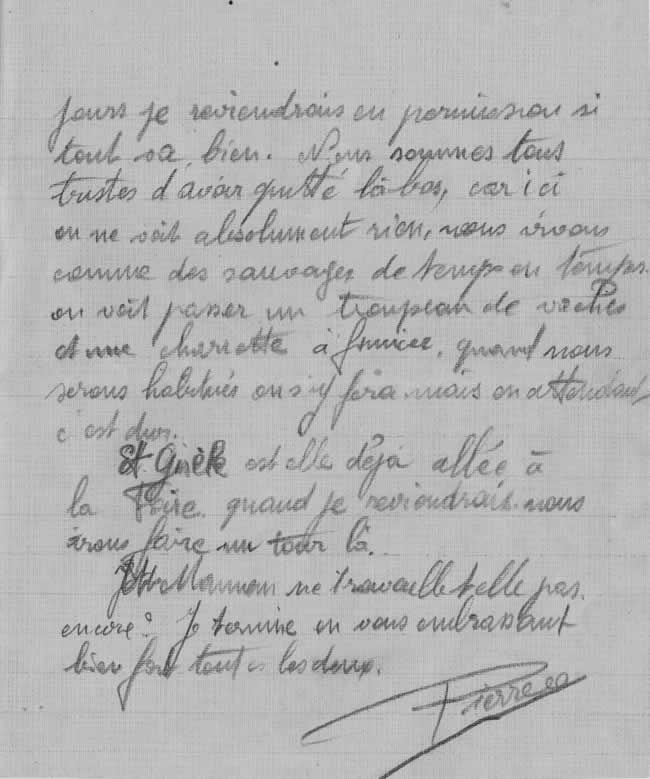 jours je reviendrais en permission si
tout va bien. Nous sommes tous
tristes d'avoir quitté là-bas, car ici
on ne voit absolument rien, nous vivons
comme des sauvages de temps en temps
on voit passer un troupeau de vaches
et une charrette à fumier, quand nous
serons habitués on s'y fera mais en attendant
c'est dur.
Et Gisèle est elle déjà allée à
la Foire quand je reviendrais nous
irons faire un tour là.
Maman ne travaille t elle pas
encore? Je termine en vous embrassant
bien fort toutes les deux.
Pierre